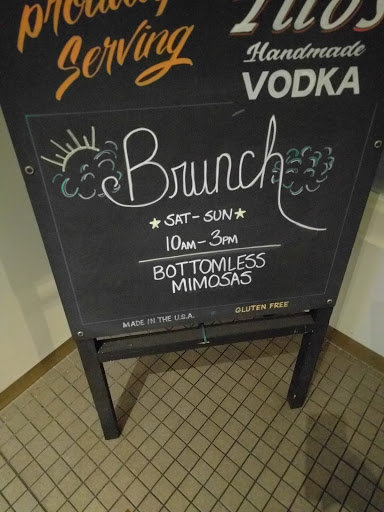 proudly
Serving
Tito's
Handmade
VODKA
Brunch
SAT - SUN
10AM - 3PM
BOTTOMLESS
MIMOSAS
MADE IN THE U.S.A.
GLUTEN FREE